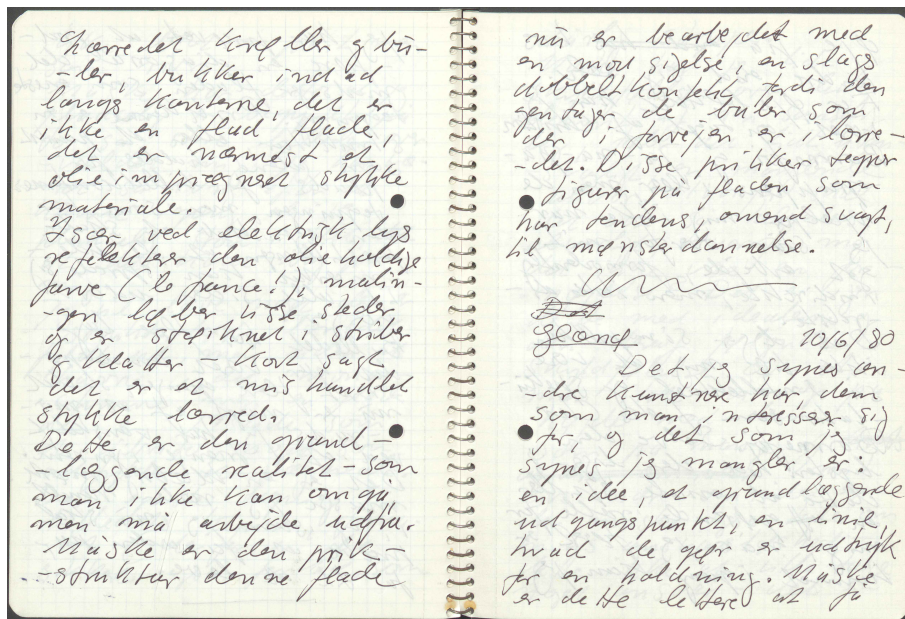 Lærredet krøller og bu-
-ler, bukker indad
langs kanterne, det er
ikke en flad flade,
det er nærmest et
olieimprægneret stykke
materiale.
Især ved elektrisk lys
reflekterer den olieholdige
farve (le france!), malin-
-gen løber visse steder
og er størknet i striber
og klatter – kort sagt
det er et mishandlet
stykke lærred.
Dette er den grund-
-læggende realitet – som
man ikke kan omgå,
men må arbejde udfra.
Måske er den prik-
-struktur denne flade
nu er bearbejdet med
en modsigelse, en slags
dobbeltkonfekt fordi den
gentager de buler som
der i forvejen er i lærre-
-det. Disse prikker tegner
figurer på fladen som
har tendens, omend svagt,
til mønsterdannelse.
Det
Gland 10/6/80
Det jeg synes an-
-dre kunstnere har, dem
som man interesserer sig
for, og det som jeg
synes jeg mangler er:
en idee, et grundlæggende
udgangspunkt, en linie,
hvad de gør er udtryk
for en holdning. Måske
er dette lettere at få